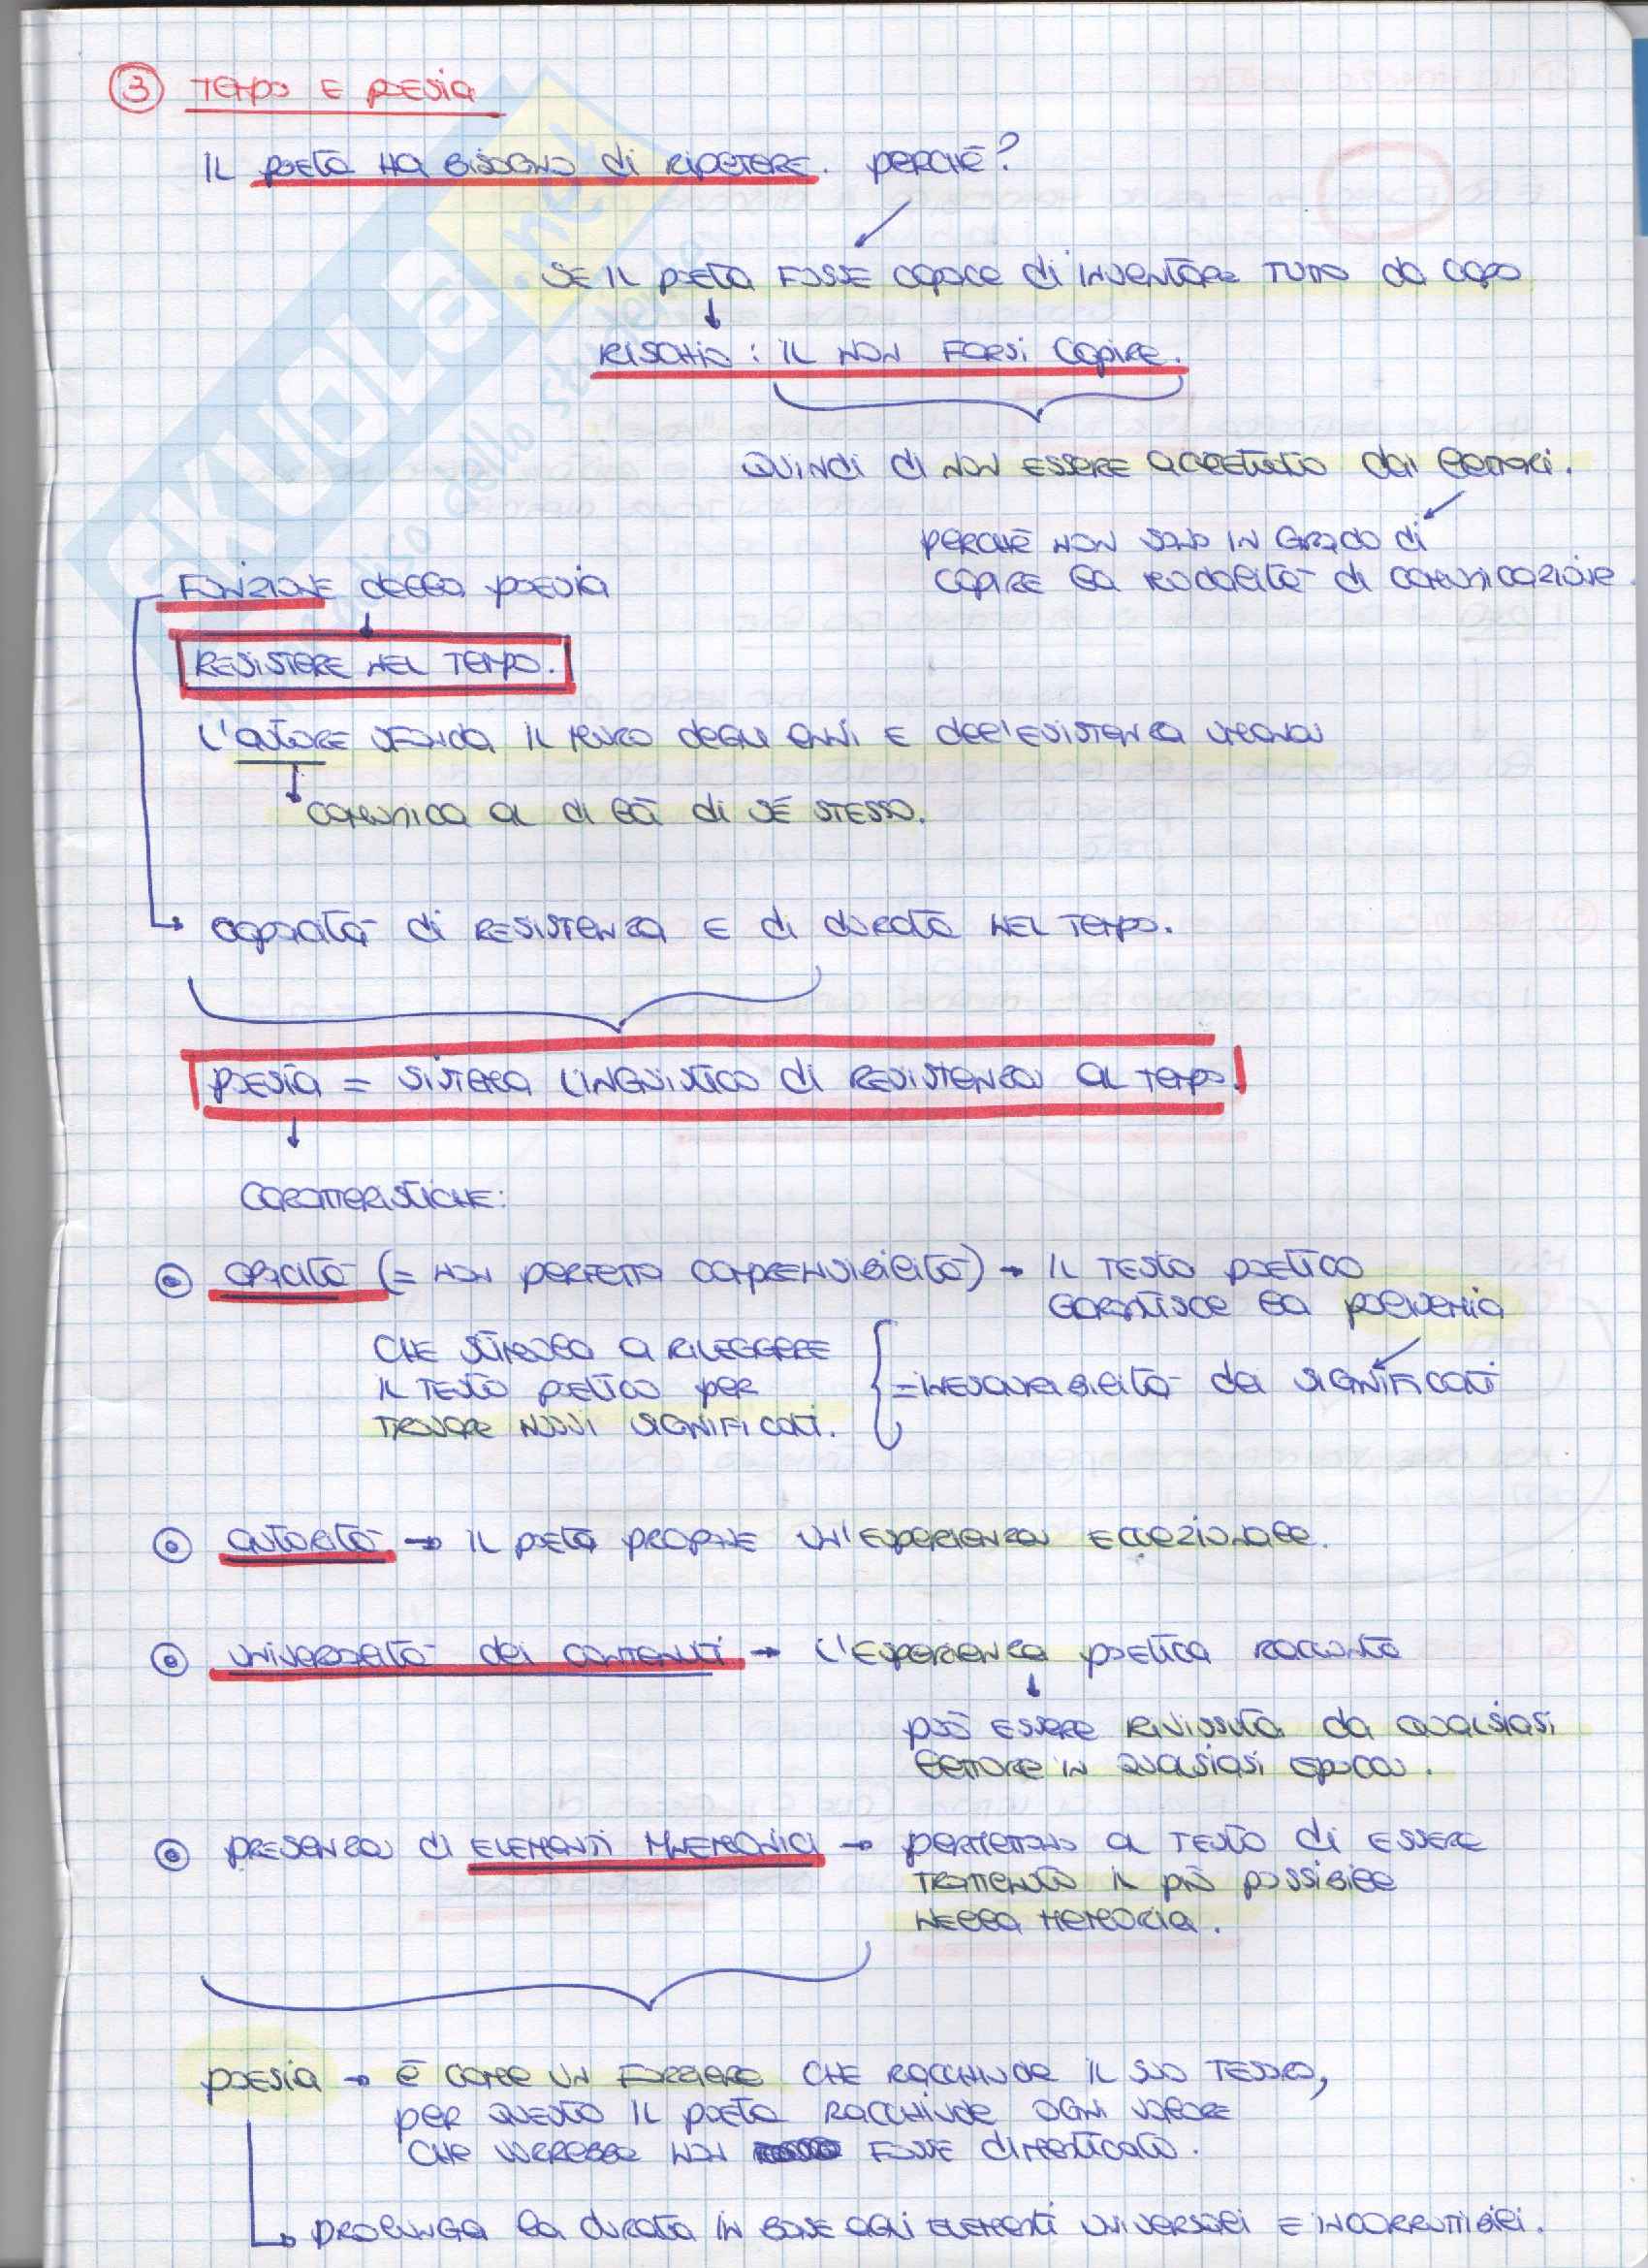 3 TEMPO E POESIA
IL POETA HA BISOGNO di RIPETERE. PERCHÈ?
SE IL POETA FOSSE capace di INVENTARE TUTTO da capo
RISCHIO: IL NON FARSI CAPIRE.
QUINDI di NON ESSERE accettato dai lettori.
PERCHÈ NON SONO IN GRADO di
CAPIRE la modalità di comunicazione.
FUNZIONE della poesia
RESISTERE NEL TEMPO.
L'autore sfonda il muro degli anni e dell'esistenza umana
comunica al di là di sé stesso.
capacità di RESISTENZA E di durata NEL TEMPO.
POESIA = SISTEMA LINGUISTICO di RESISTENZA AL TEMPO.
CARATTERISTICHE:
opacità (= NON PERFETTA COMPRENSIBILITÀ) → IL TESTO POETICO
GARANTISCE la polisemia
CHE STIMOLA A RILEGGERE
IL TESTO POETICO PER
TROVARE NUOVI SIGNIFICATI.
= INESAURIBILITÀ dei SIGNIFICATI
autorità → IL POETA PROPONE UN'ESPERIENZA ECCEZIONALE.
UNIVERSALITÀ dei CONTENUTI → L'ESPERIENZA POETICA RACCONTATA
PUÒ ESSERE RIVISSUTA da QUALSIASI
lettore IN QUALSIASI EPOCA.
PRESENZA di ELEMENTI MNEMONICI → PERMETTONO al TESTO di ESSERE
TRATTENUTO IL PIÙ POSSIBILE
NELLA MEMORIA.
POESIA → È COME UN FORZIERE CHE RACCHIUDE IL SUO TESORO,
PER QUESTO IL POETA RACCHIUDE OGNI VALORE
CHE VORREBBE NON FOSSE dimenticato.
PROLUNGA la durata IN BASE agli ELEMENTI UNIVERSALI E INCORRUTTIBILI.
SKUOLA.net